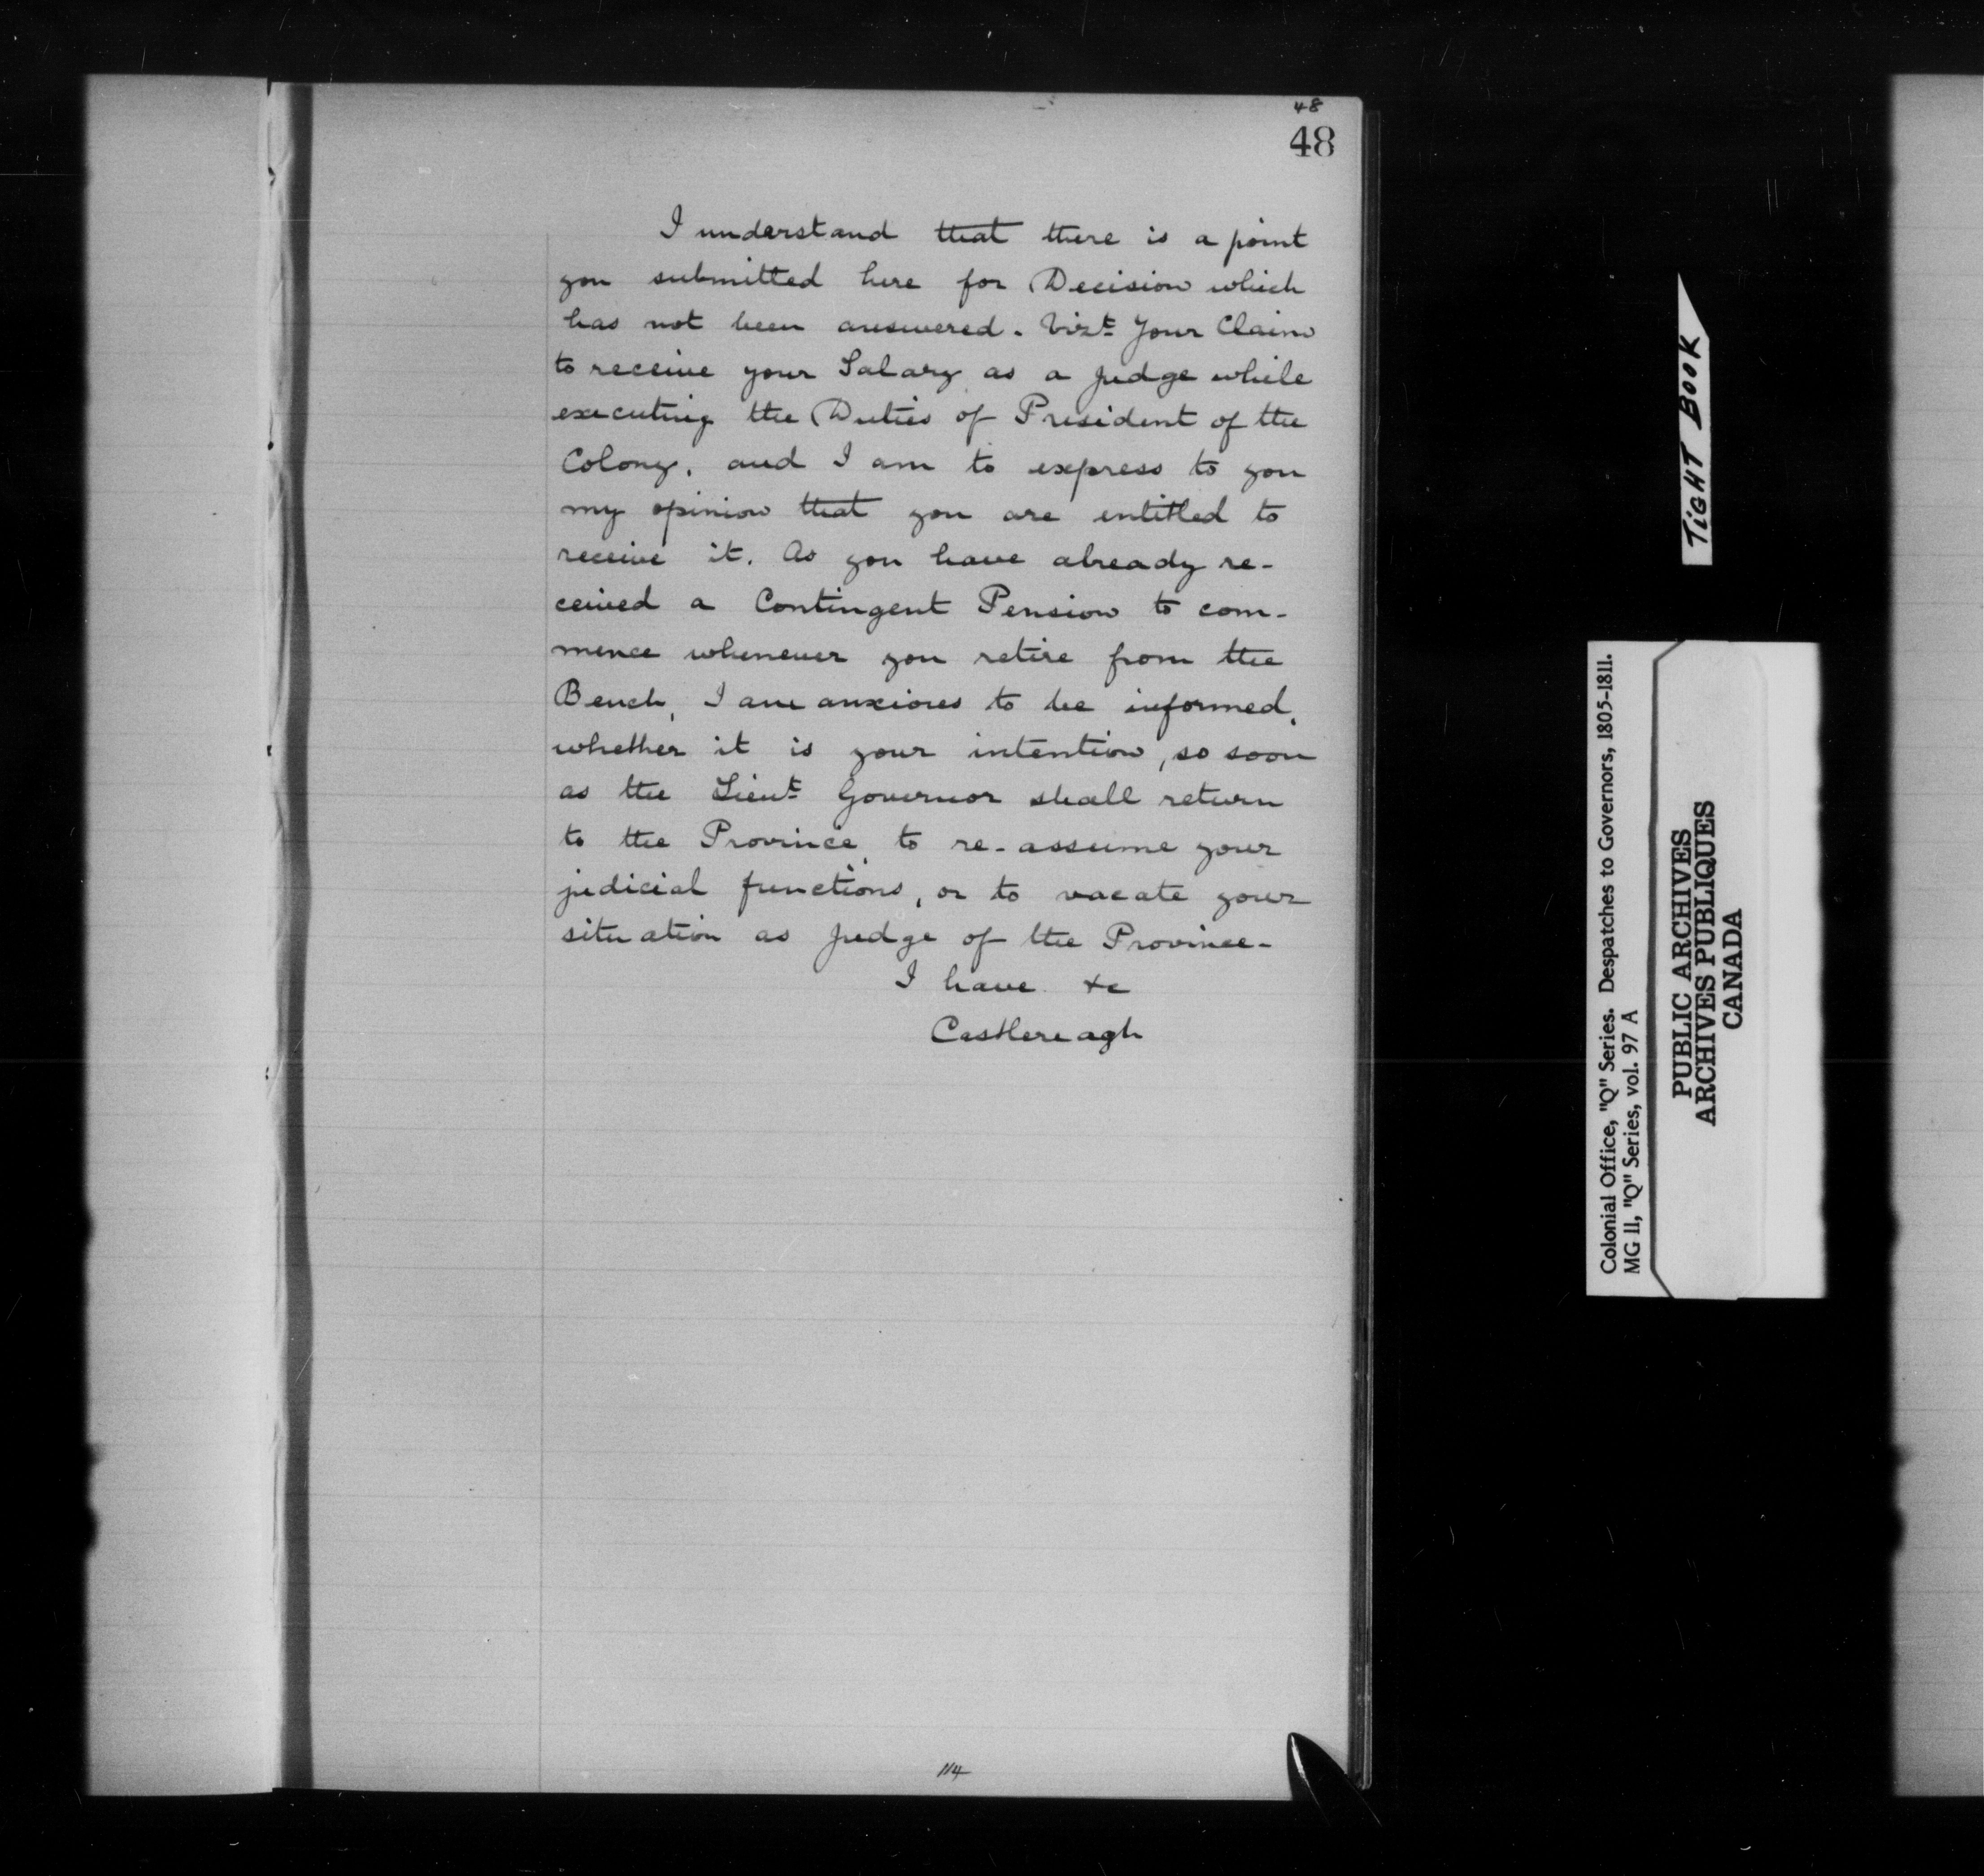 48
48
I understand that there is a point
you submitted here for Decision which
has not been answered. Vizt Your Claim
to receive your Salary as a judge while
executing the Duties of President of the
Colony, and I am to express to you
my opinion that you are entitled to
receive it. As you have already re-
ceived a Contingent Pension to com-
mence whenever you retire from the
Bench, I am anxious to be informed,
whether it is your intention, so soon
as the Lieut Governor shall return
to the Province, to re-assume your
judicial functions, or to vacate your
situation as judge of the Province-
I have &c
Castlereagh
114
TIGHT BOOK
Colonial Office, "Q" Series. Despatches to Governors, 1805-1811.
MG 11, "Q" Series, vol. 97 A
PUBLIC ARCHIVES
ARCHIVES PUBLIQUES
CANADA